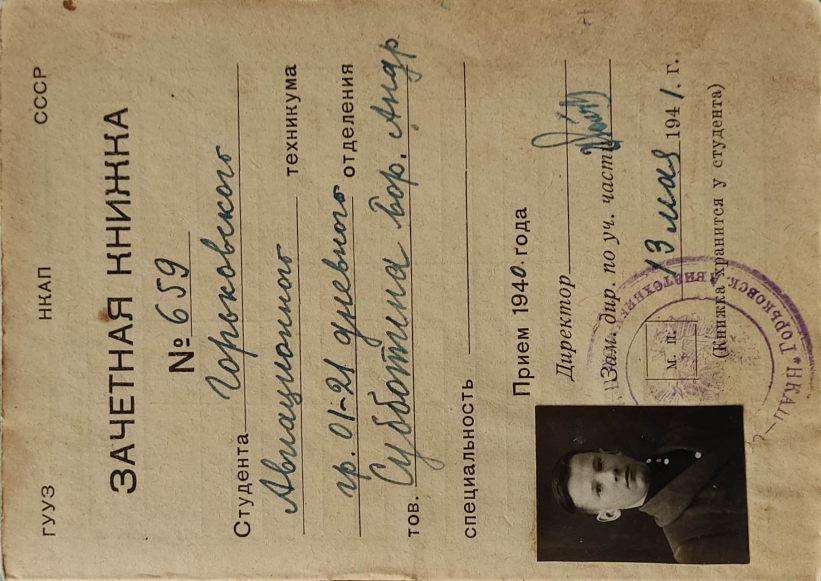 ГУУЗ НКАП СССР
ЗАЧЕТНАЯ КНИЖКА
№ 659
Студента Горьковского
Авиационного техникума
гр. 01-21 дневного отделения
тов. Субботина Бор. Андр.
специальность
Прием 1940 года
Директор
Зам. дир. по уч. части
13 мая 1941. г.
М. П.
(Книжка хранится у студента)
НКАП
Горьковск. Авиатехник